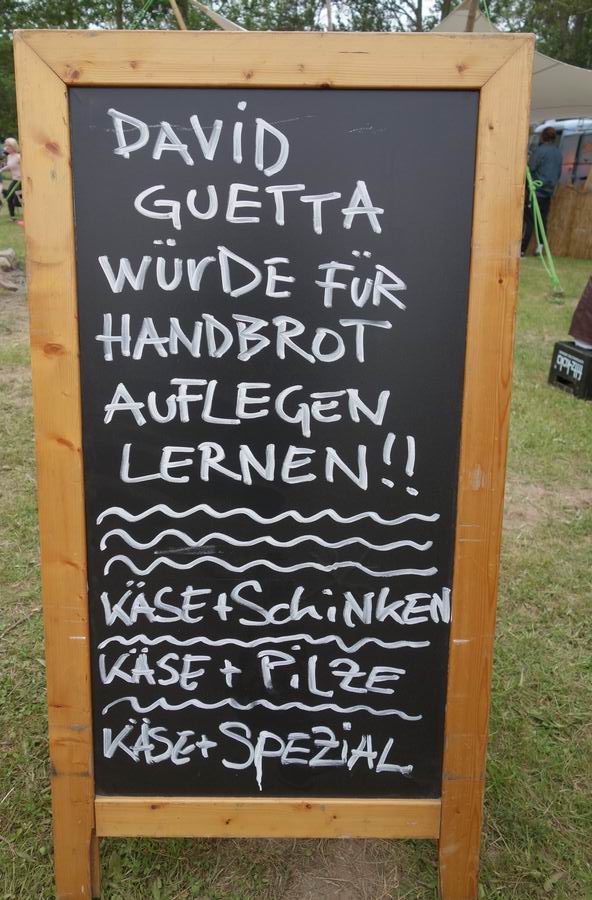 DAViD
GUETTA
WÜrDE FÜR
HANDBROT
AUFLEGEN
LERNEN!!
KÄSE+SchiNKEN
KÄSE + PiLZE
KÄSE+SPEZiAL